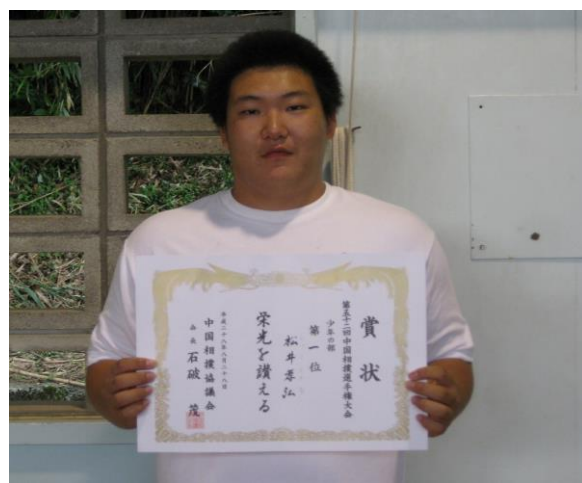 賞状
第五十二回中国相撲選手権大会
少年の部
第一位
松井孝弘
栄光を讃える
平成二十八年八月二十八日
中国相撲協議会
会長 石破 茂